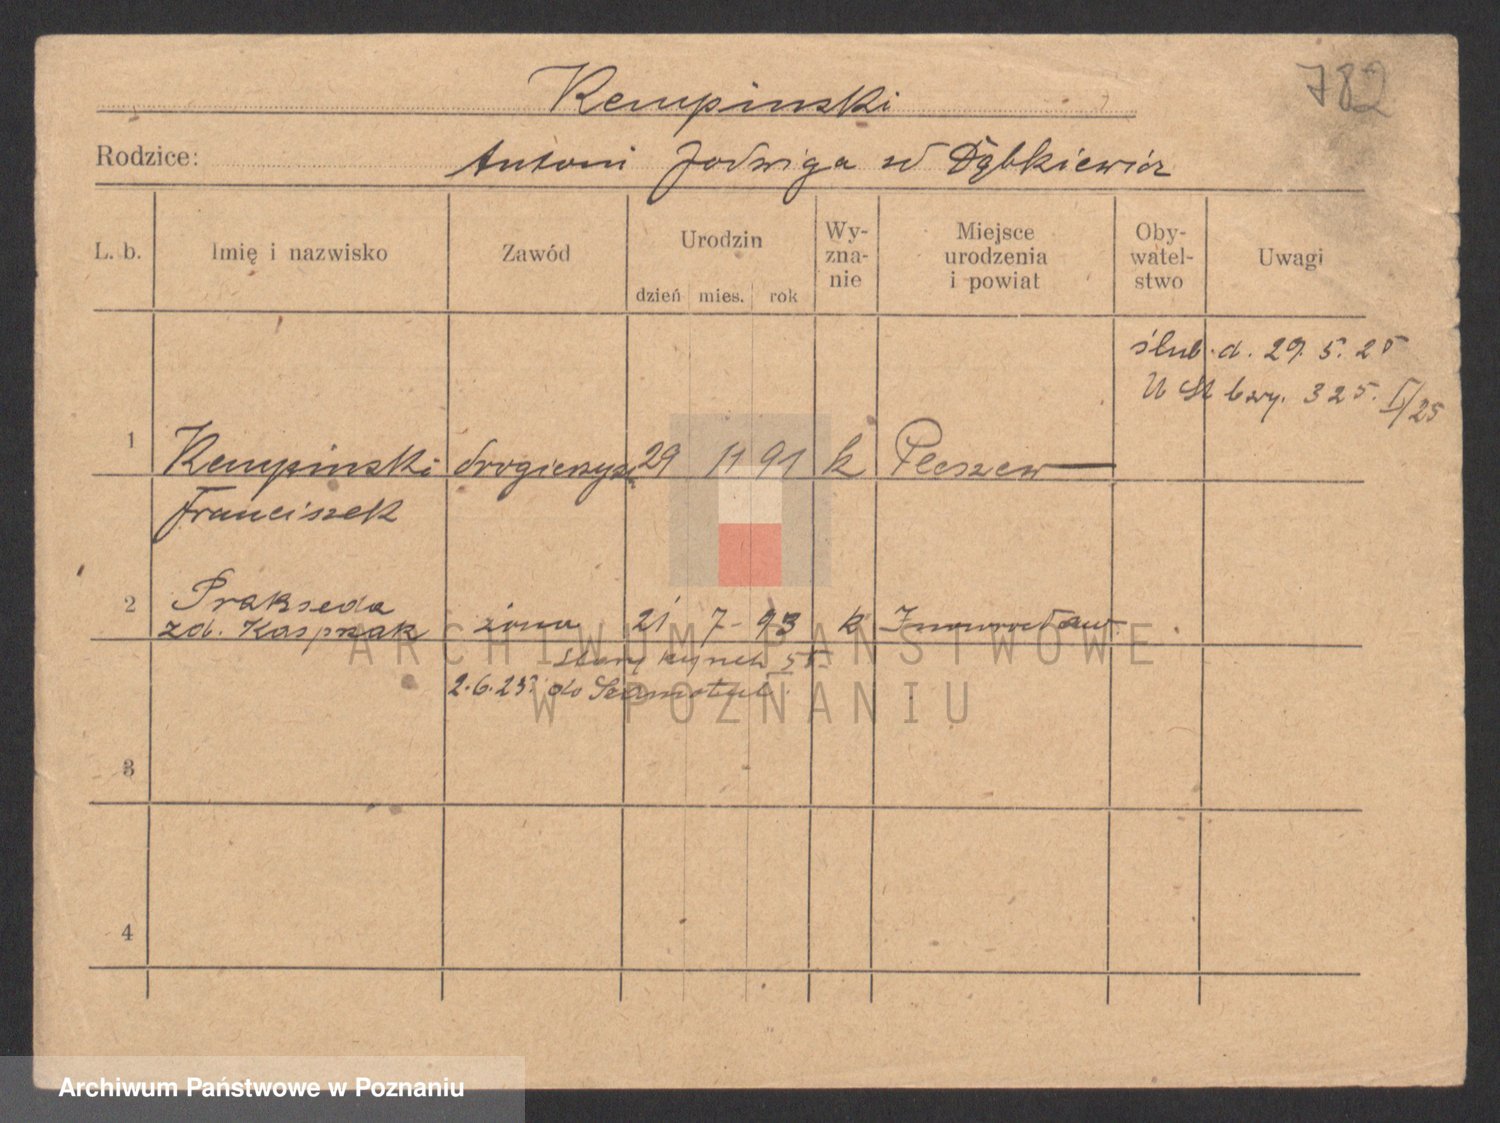 782
Kempinski
Rodzice: Antoni Jadwiga zd Dąbkiewicz
L. b. Imię i nazwisko Zawód Urodzin dzień mies. rok Wy-zna-nie Miejsce urodzenia i powiat Oby-watel-stwo Uwagi
ślub. d. 29. 5. 25
325. I/25
1 Kempinski drogierzysta 29 11 91 k Pleszew
Franciszek
2 Prakseda
zd. Kasprzak żona 21 7 - 93 k Inowrocław
Stary Rynek 55
2.6.25 do Szamotuł.
3
4
ARCHIWUM PAŃSTWOWE
W POZNANIU
Archiwum Państwowe w Poznaniu